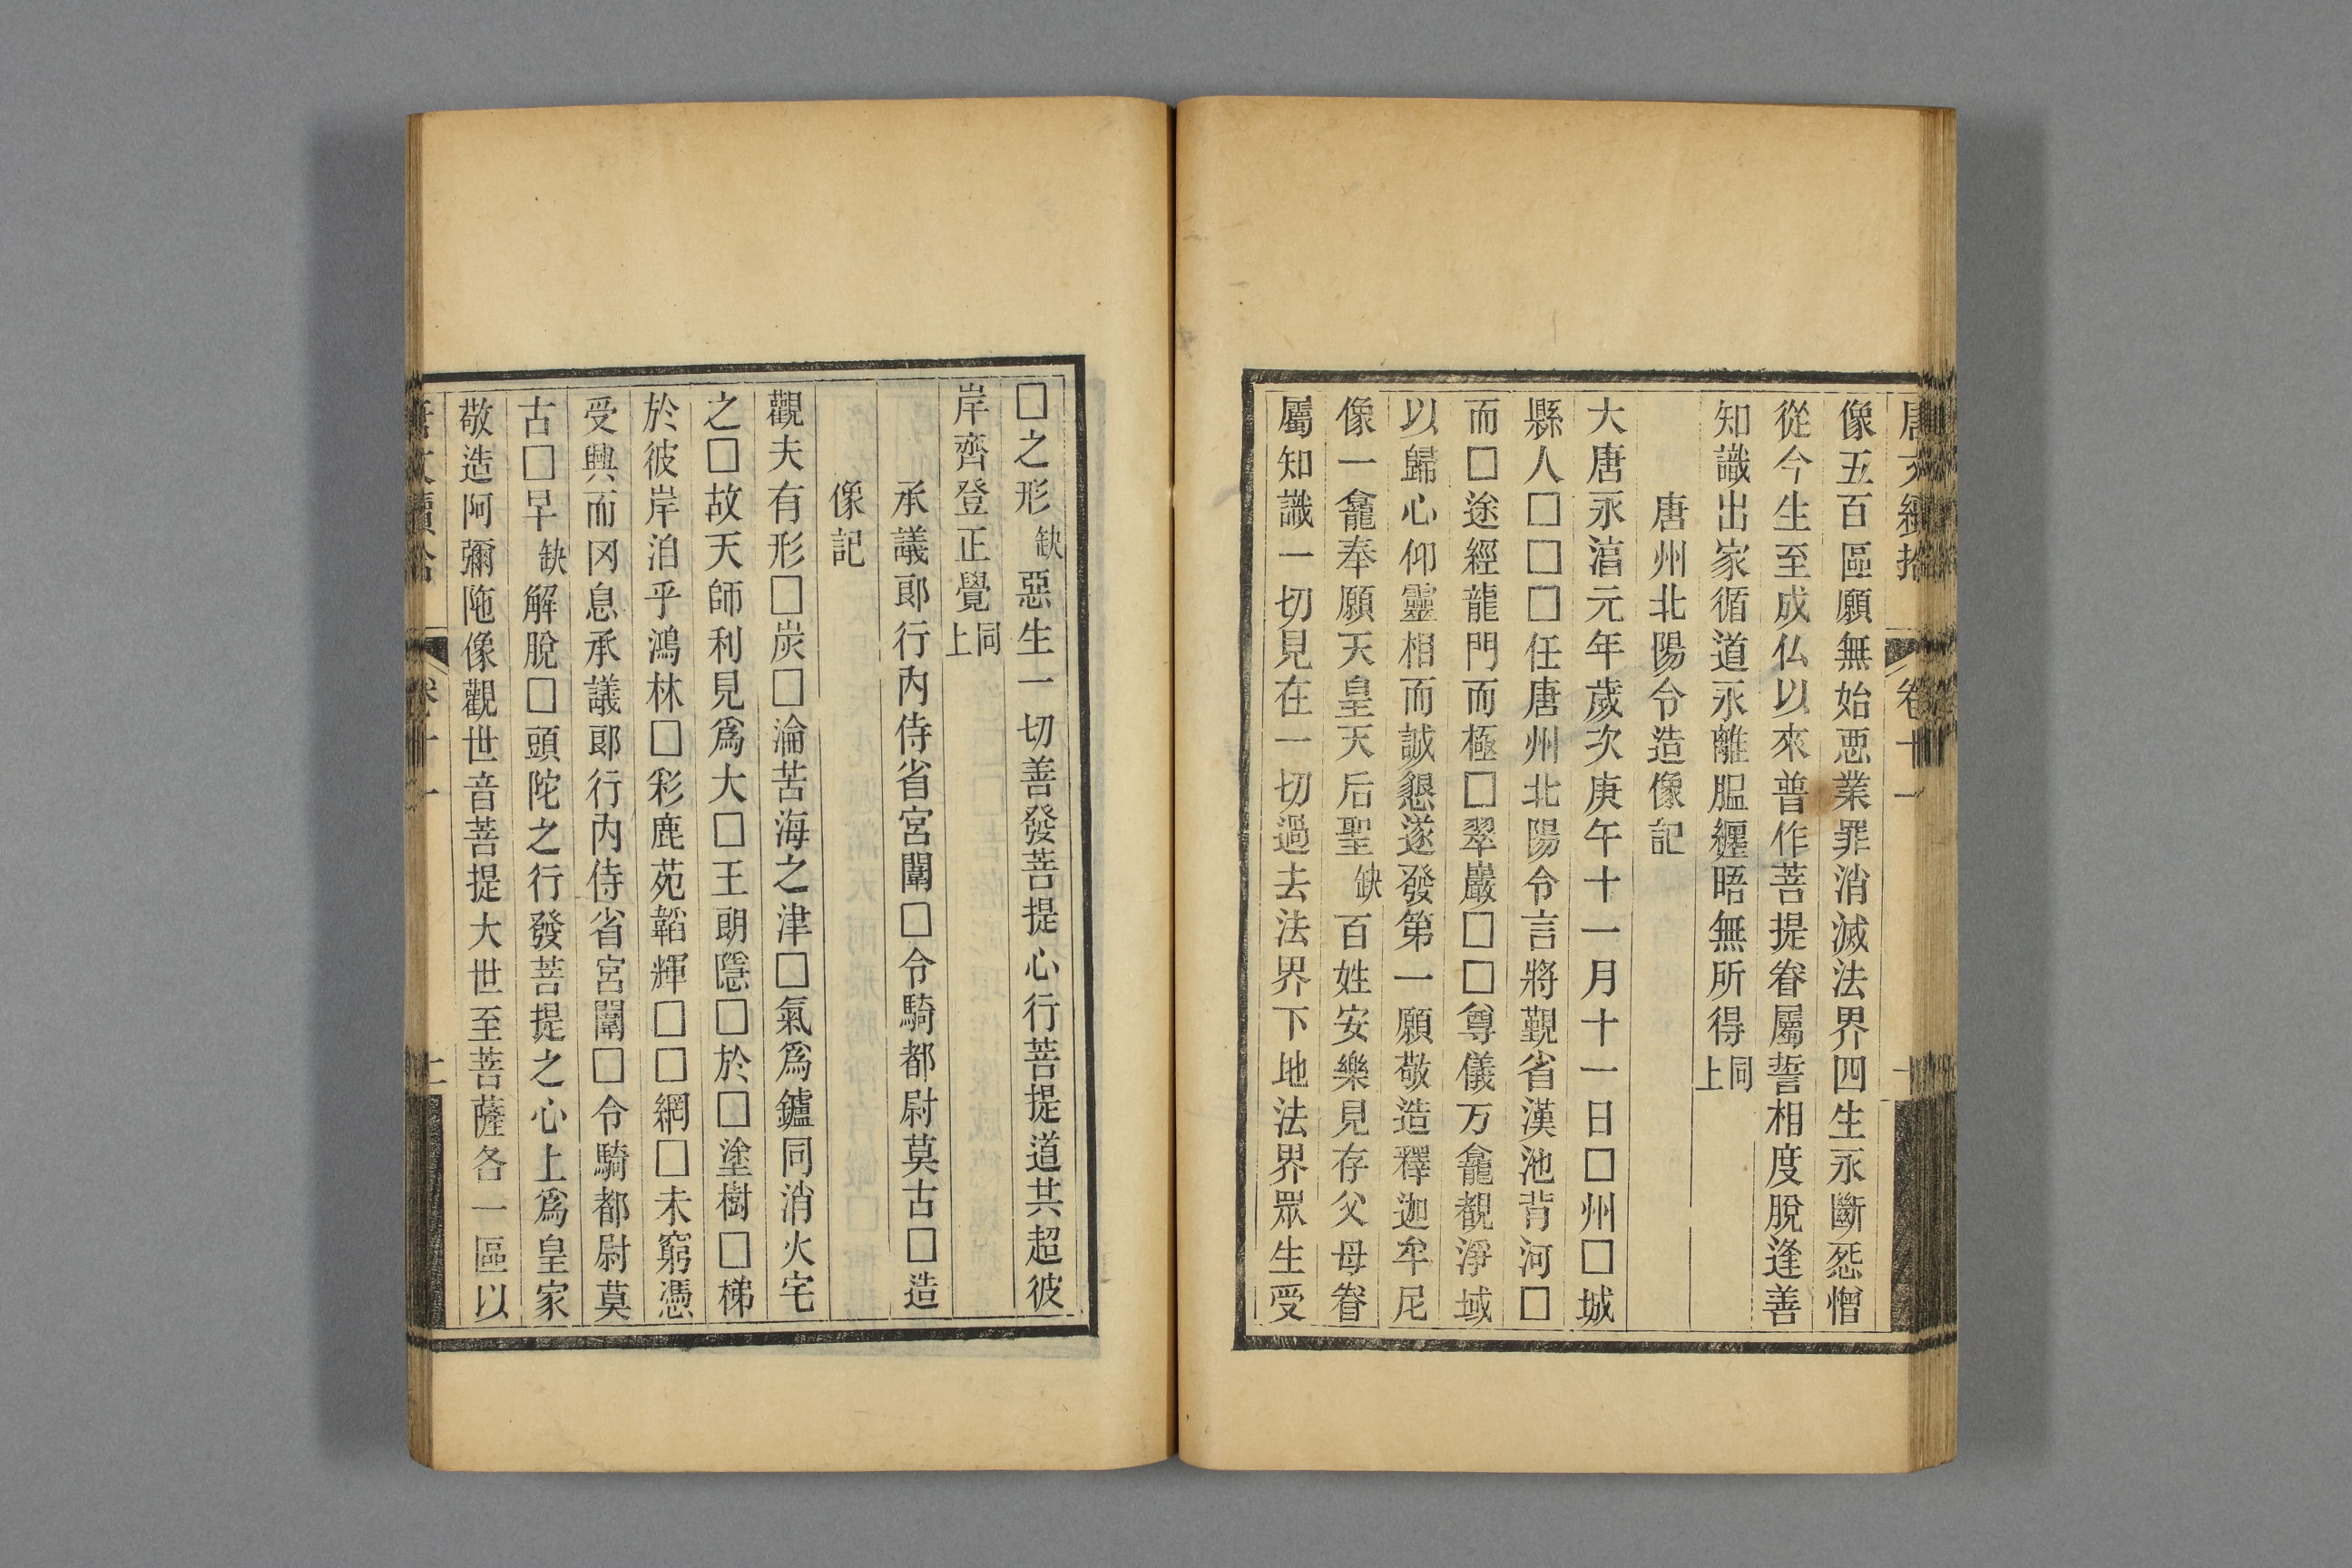 唐文續拾 卷十一
像五百區願無始惡業罪消滅法界四生永斷惌憎
從今生至成仏以來普作菩提眷屬誓相度脫逢善
知識出家循道永離膃纒晤無所得同上
唐州北陽令造像記
大唐永湻元年歲次庚午十一月十一日□州□城
縣人□□□任唐州北陽令言將覲省漢池背河□
而□途經龍門而極□翠巖□□尊儀万龕覩淨域
以歸心仰靈相而誠懇遂發第一願敬造釋迦牟尼
像一龕奉願天皇天后聖缺百姓安樂見存父母眷
屬知識一切見在一切過去法界下地法界眾生受
□之形缺惡生一切善發菩提心行菩提道共超彼
岸齊登正覺同上
承議郎行內侍省宮闈□令騎都尉莫古□造
像記
觀夫有形□炭□淪苦海之津□氣爲鑪同消火宅
之□故天師利見爲大□王朗隱□於□塗樹□梯
於彼岸洎乎鴻林□彩鹿苑韜輝□□網□未窮憑
受興而冈息承議郎行內侍省宮闈□令騎都尉莫
古□早缺解脫□頭陀之行發菩提之心上爲皇家
敬造阿彌陁像觀世音菩提大世至菩薩各一區以